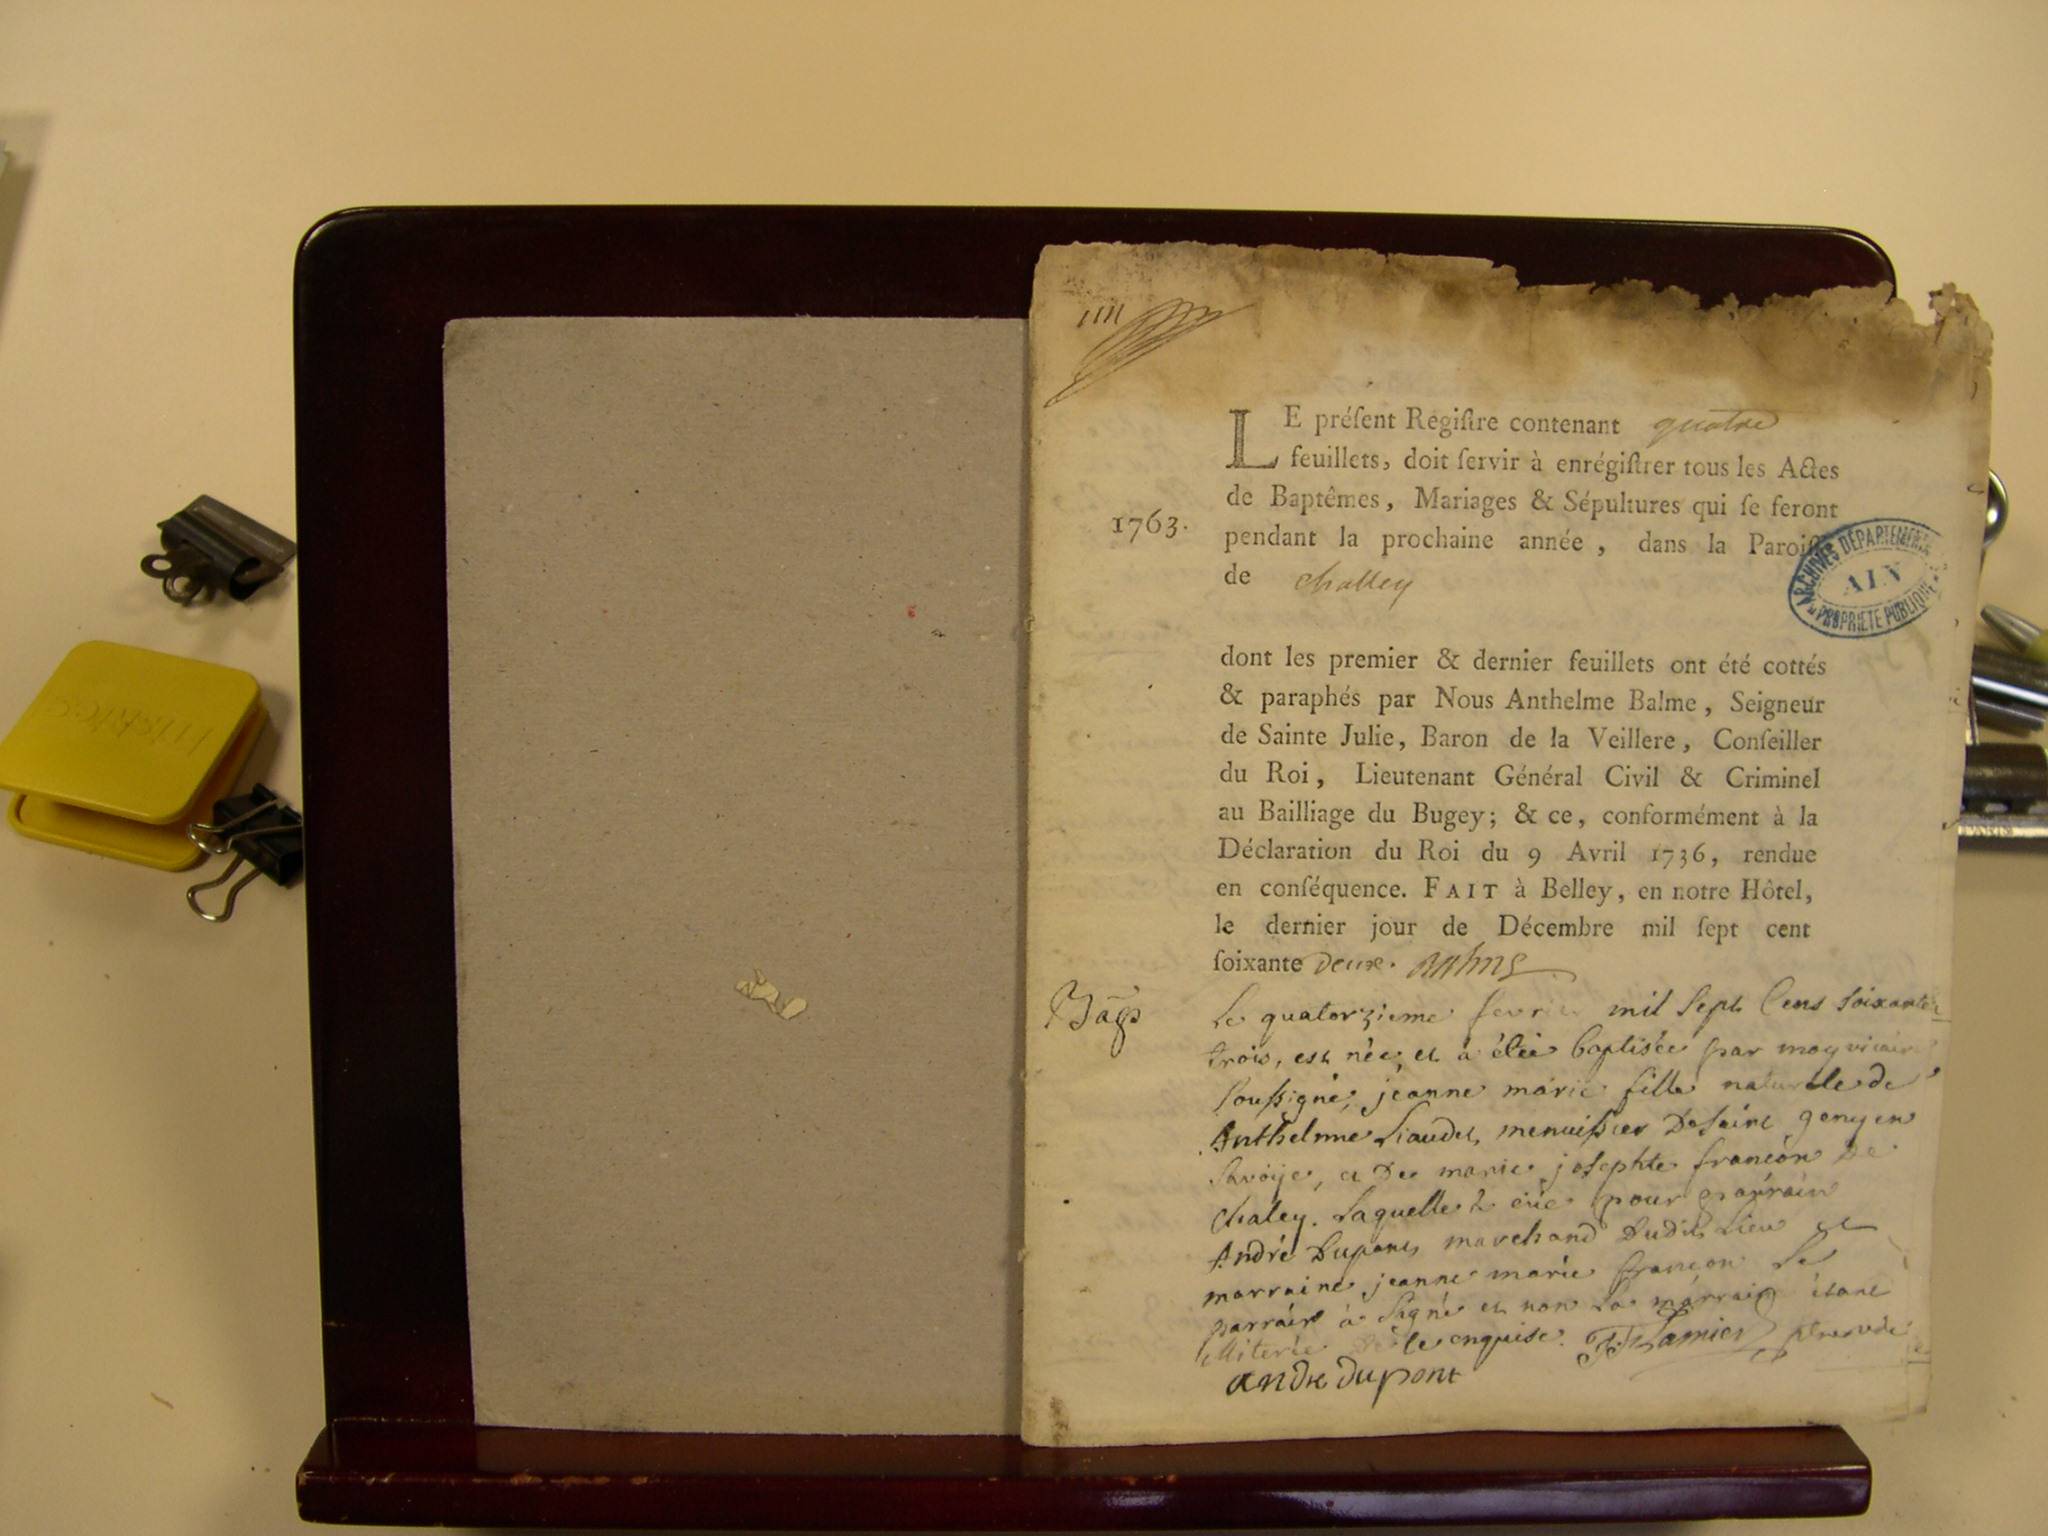 LE préſent Regiſtre contenant quatre
feuillets, doit ſervir à enrégiſtrer tous les Actes
de Baptêmes, Mariages & Sépultures qui ſe feront
1763.
pendant la prochaine année, dans la Paroiſ
de challey
ARCHIVES DÉPARTEMENT
AIN
PROPRIÉTÉ PUBLIQUE
dont les premier & dernier feuillets ont été cottés
& paraphés par Nous Anthelme Balme, Seigneur
de Sainte Julie, Baron de la Veillere, Conſeiller
du Roi, Lieutenant Général Civil & Criminel
au Bailliage du Bugey; & ce, conformément à la
Déclaration du Roi du 9 Avril 1736, rendue
en conſéquence. FAIT à Belley, en notre Hôtel,
le dernier jour de Décembre mil ſept cent
ſoixante deux. Balme
Le quatorzieme fevrier mil sept Cens soixante
trois, est née, et a étée baptisée par moy vicaire
soussigné, jeanne marie fille naturelle de
Anthelme Liaudet, menuissier De saint geny en
savoije, et De marie josephte françon De
chaley. Laquelle a eue pour parrain
André Dupont, marchand Dudit Lieu et
marraine jeanne marie françon Le
parrain à signé et non La marraine étant
illiterée De le enquise.
andre dupont